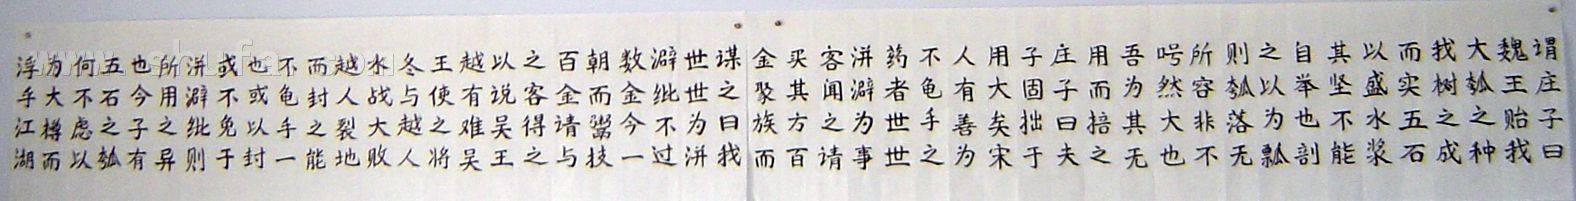 谓庄子曰
魏王贻我
大瓠之种
我树之成
而实五石
以盛水浆
其坚不能
自举也剖
之以为瓢
则瓠落无
所容非不
呺然大也
吾为其无
用而掊之
庄子曰夫
子固拙于
用大矣宋
人有善为
不龟手之
药者世世
洴澼为事
客闻之请
买其方百
金聚族而
谋之曰我
世世为洴
澼纰不过
数金今一
朝而鬻技
百金请与
之客得之
以说吴王
越有难吴
王使之将
冬与越人
水战大败
越人裂地
而封之能
不龟手一
也或以封
或不免于
洴澼纰则
所用之异
也今子有
五石之瓠
何不虑以
为大樽而
浮手江湖